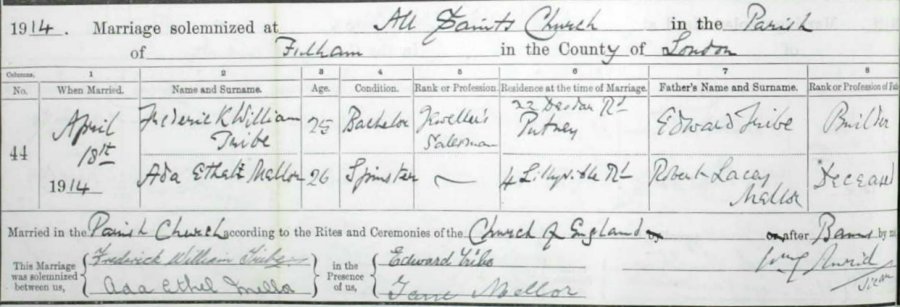 1914. Marriage solemnized at All Saints Church in the Parish
of Fulham in the County of London
Columns. 1 2 3 4 5 6 7 8
No. When Married. Name and Surname. Age. Condition. Rank or Profession. Residence at the time of Marriage. Father's Name and Surname. Rank or Profession of
44 April 18th 1914 Frederick William Tribe 25 Bachelor Jeweller's Salesman Rd Putney Edward Tribe Builder
Ada Ethel Mellor 26 Spinster ~ 4 Lillyville Rd Robert Lacey Mellor Deceased
Married in the Parish Church according to the Rites and Ceremonies of the Church of England or after Banns by
This Marriage was solemnized between us, Frederick William Tribe in the Presence of us, Edward Tribe
Ada Ethel Mellor Jane Mellor